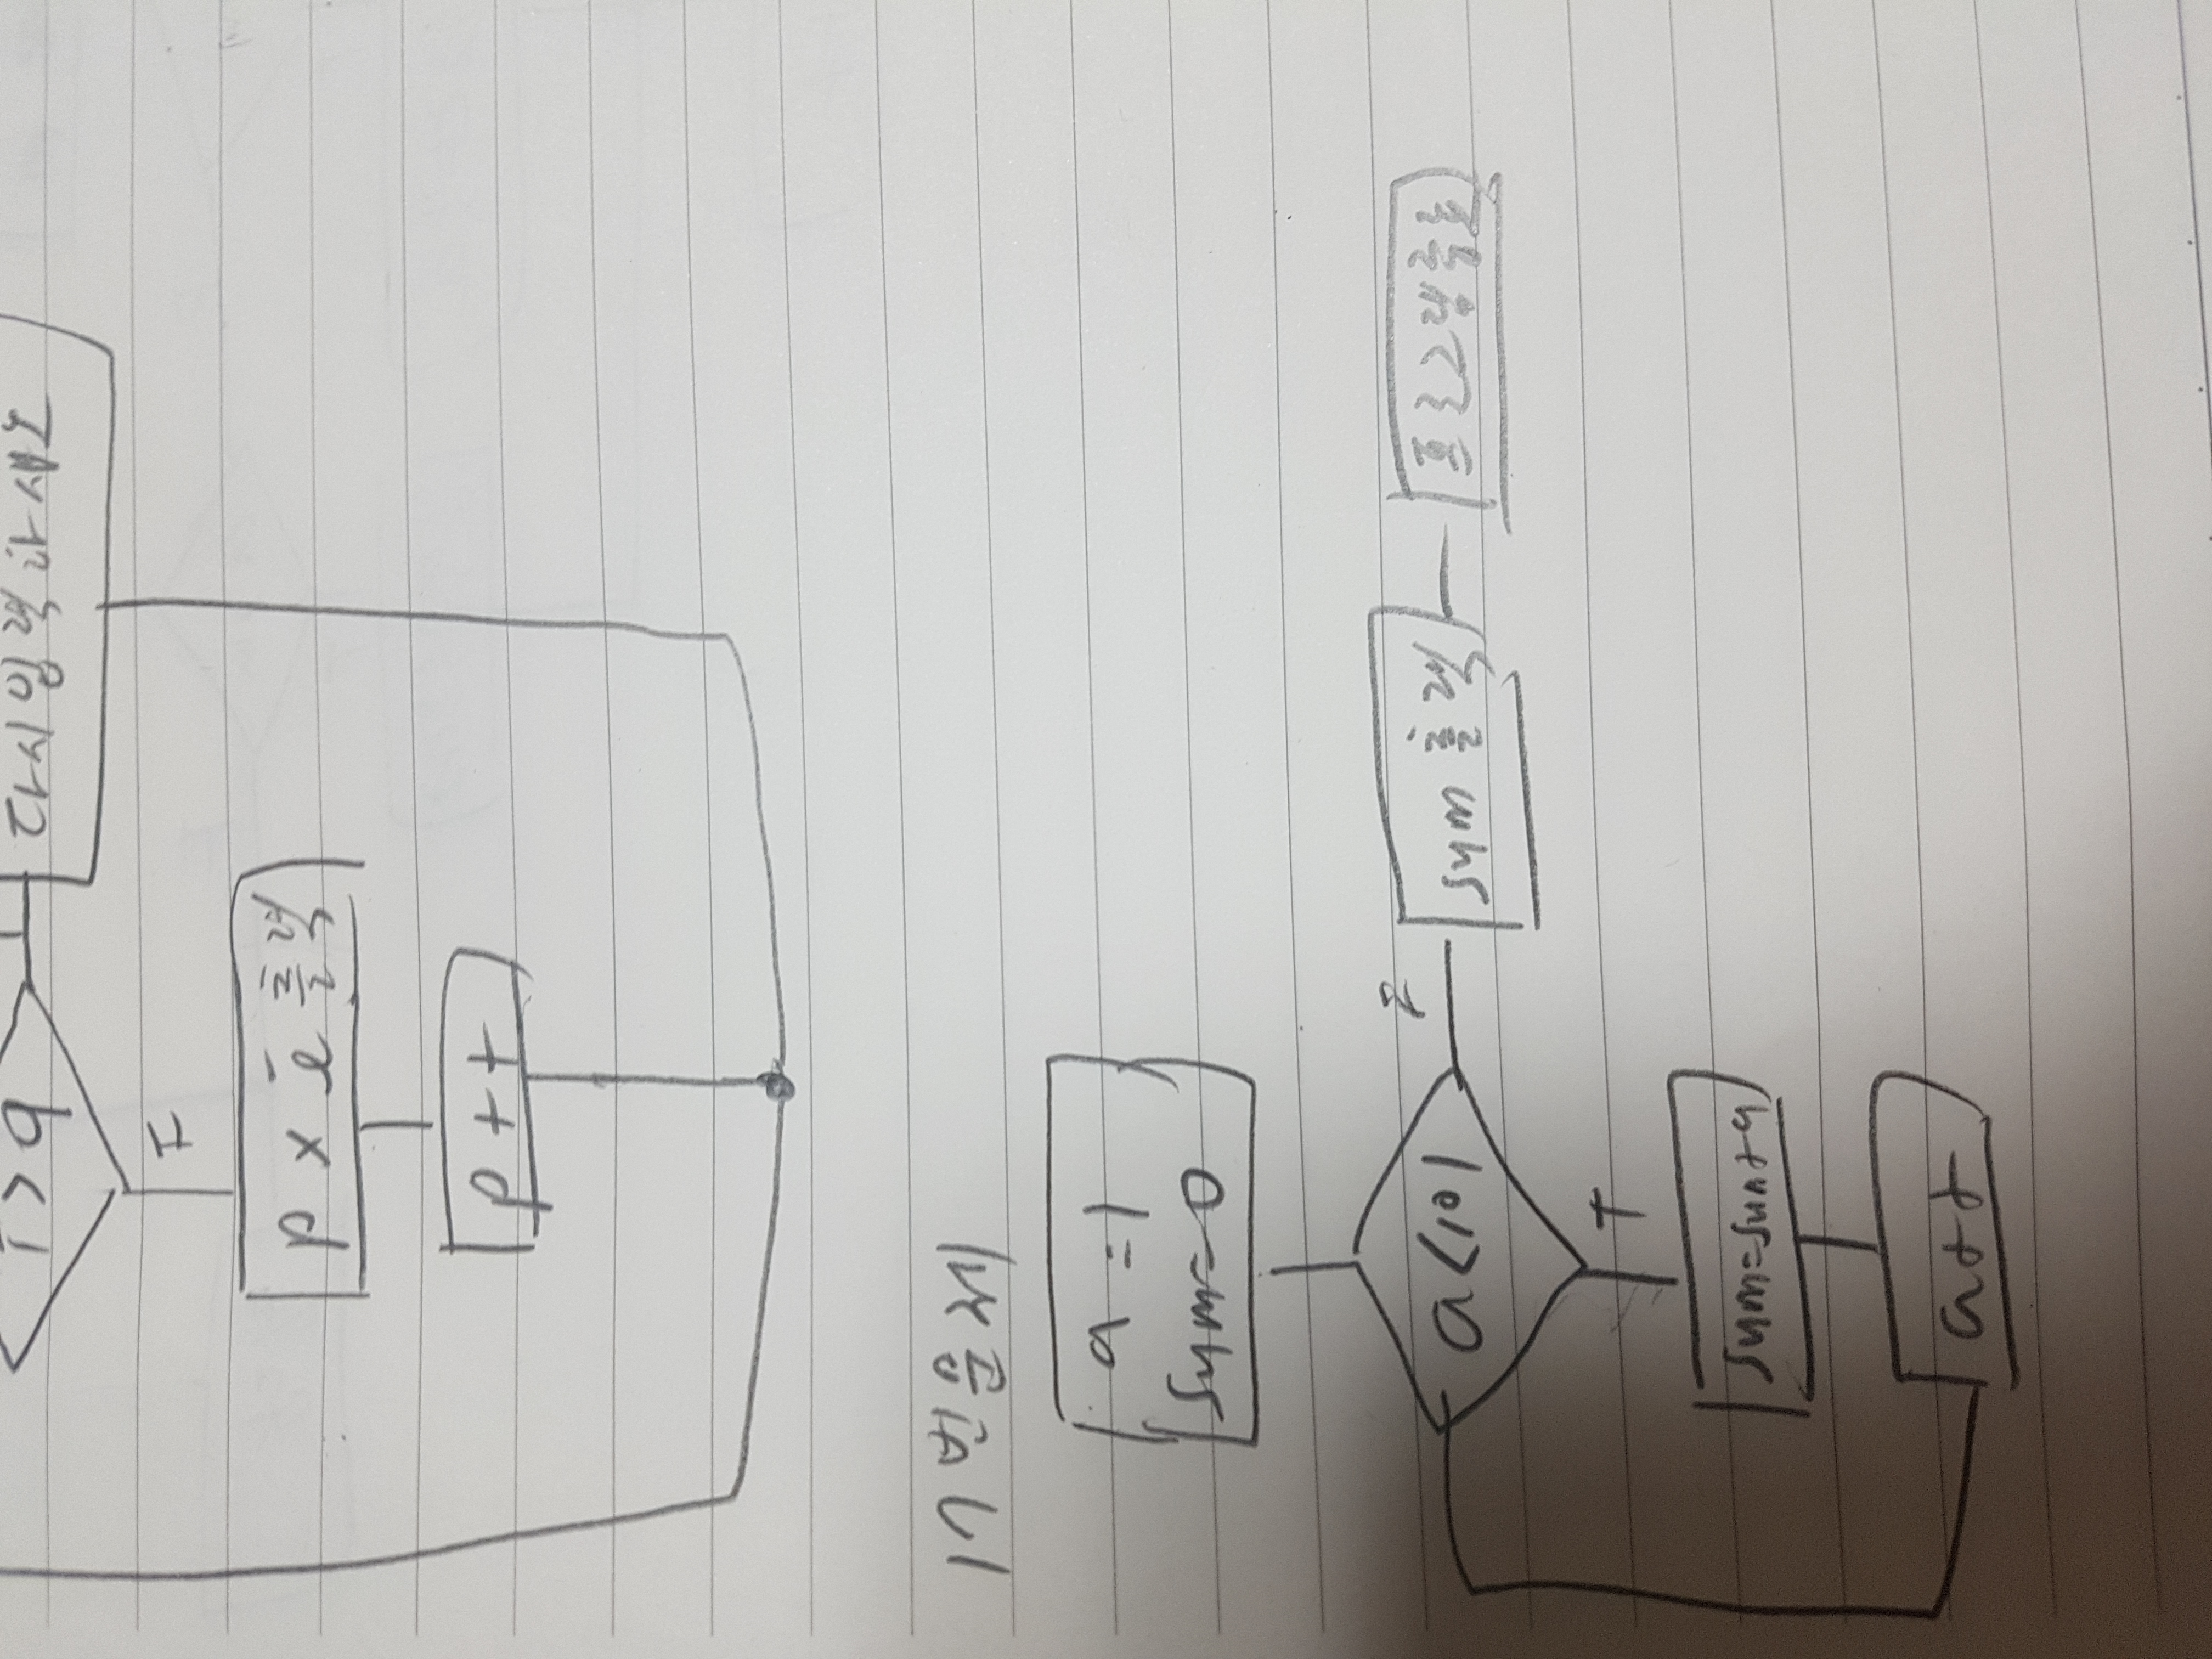 i > 9
다시입력하세요
F
p x i 출력
p++
17번문제
a =1
sum=0
a<101
F
sum 출력
프로그램종료
T
sum=sum+a
a++